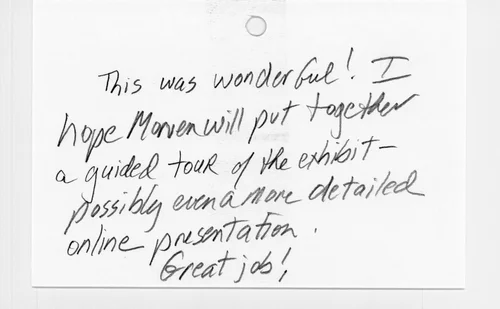 This was wonderful! I
hope Morven will put together
a guided tour of the exhibit-
possibly even a more detailed
online presentation.
Great job!